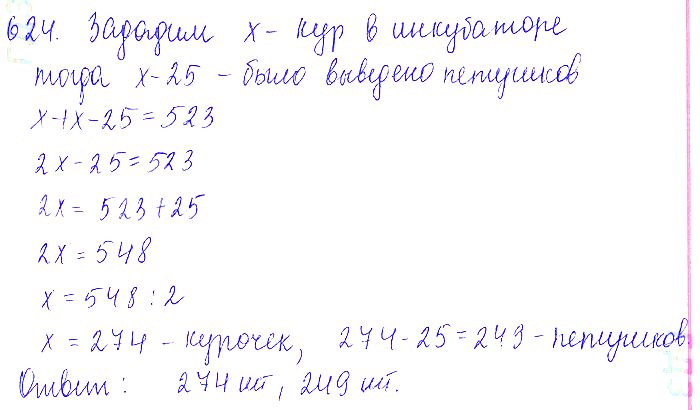 624. Зададим x - кур в инкубаторе
тогда x - 25 - было выведено петушков
x + x - 25 = 523
2x - 25 = 523
2x = 523 + 25
2x = 548
x = 548 : 2
x = 274 - курочек, 274 - 25 = 249 - петушков
Ответ: 274 шт, 249 шт.